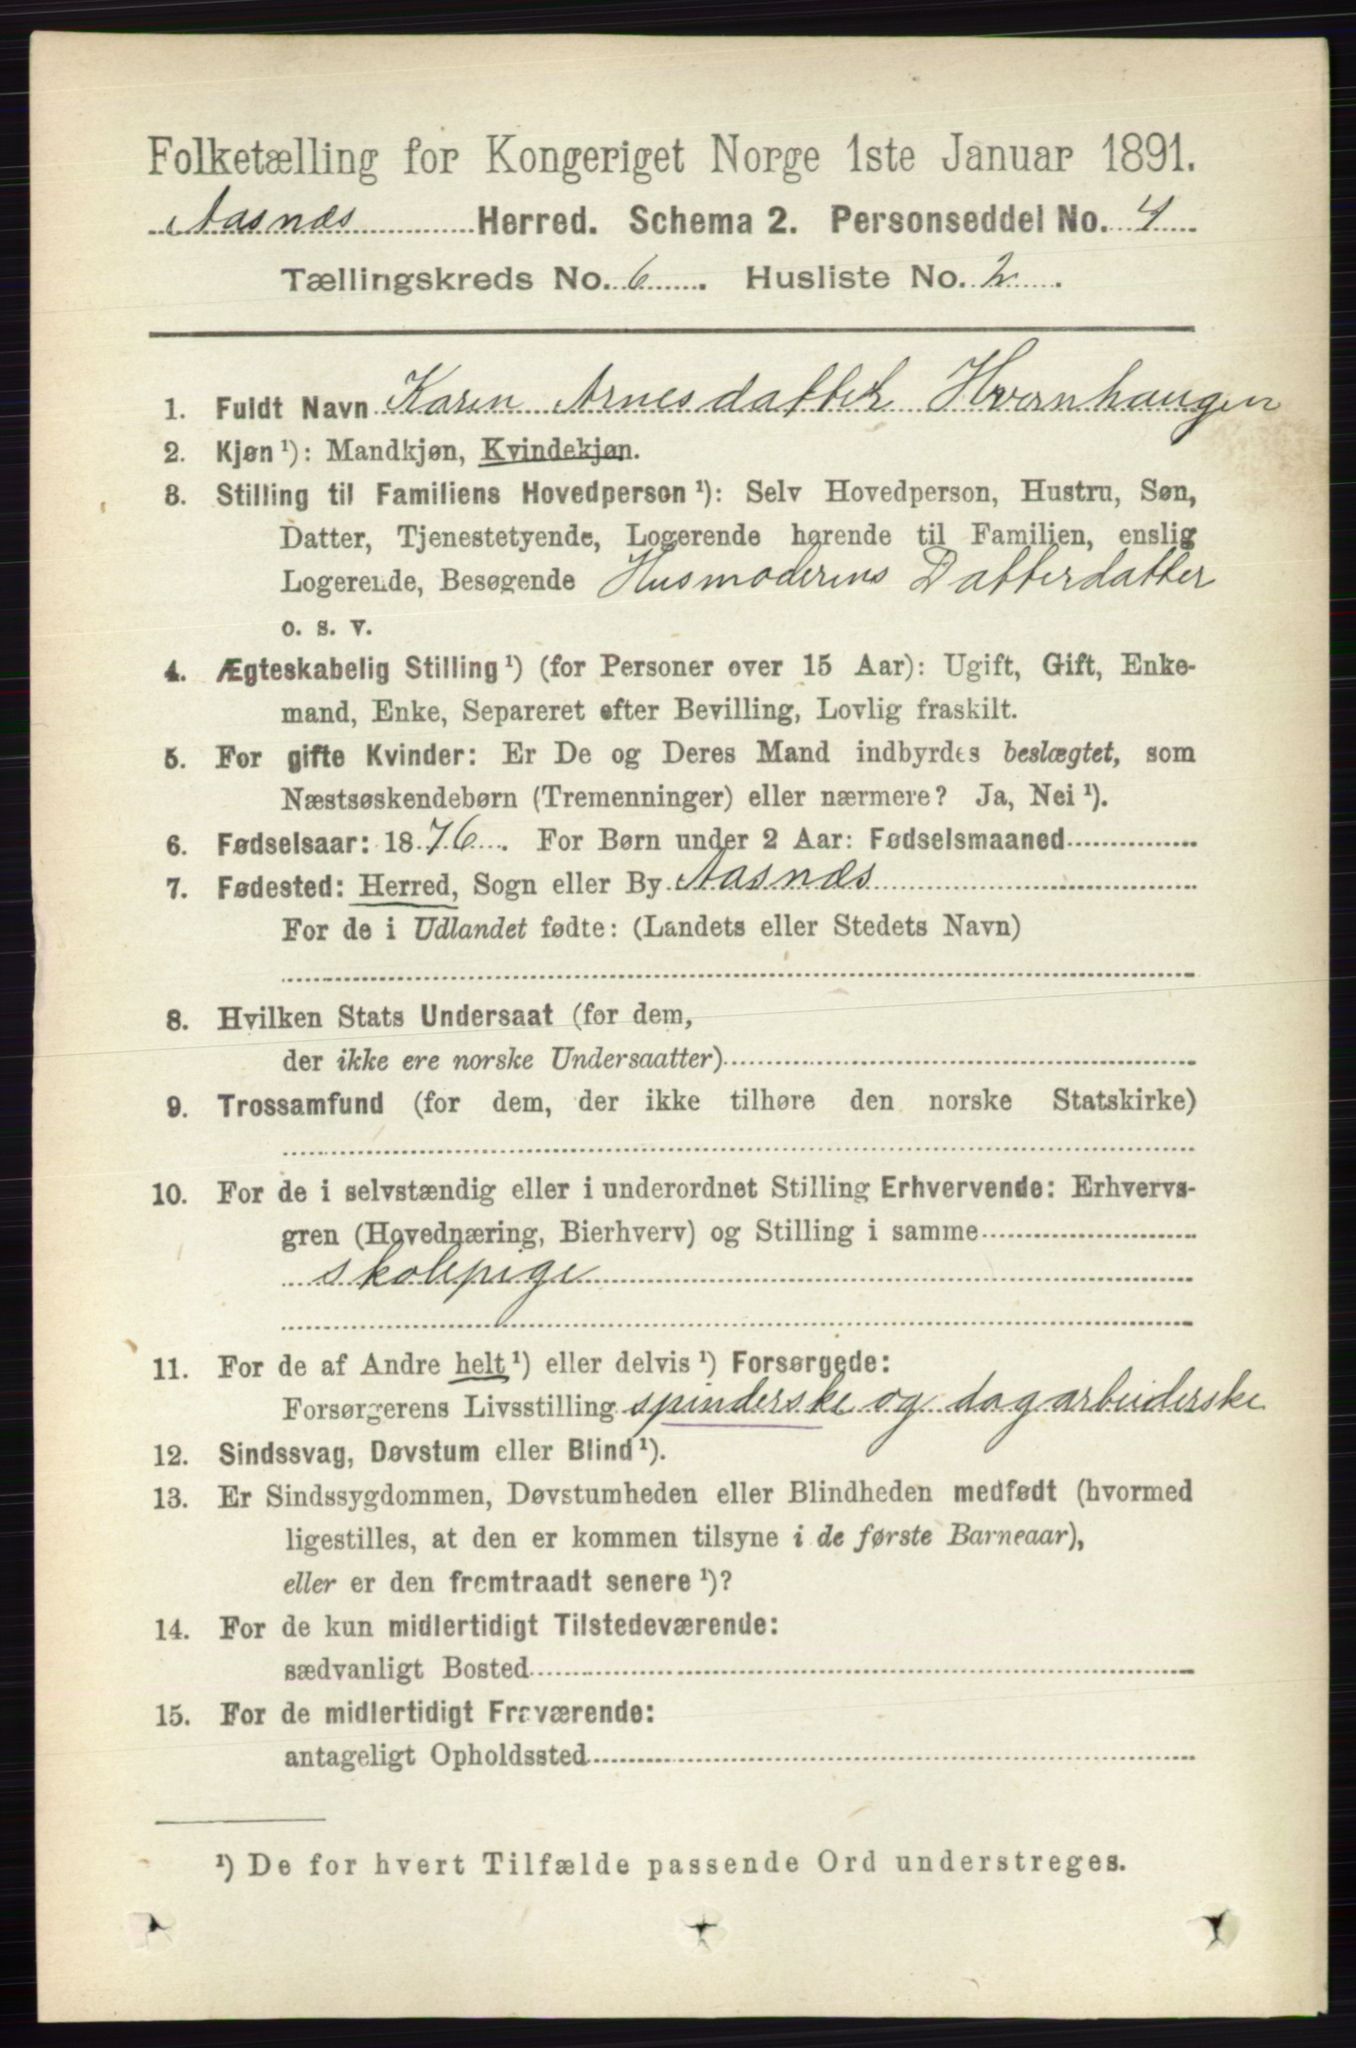 Folketælling for Kongeriget Norge 1ste Januar 1891.
Aasnæs Herred. Schema 2. Personseddel No. 4
Tællingskreds No. 6. Husliste No. 2.
1. Fuldt Navn Karen Arnesdatter Hvernhaugen
2. Kjøn¹): Mandkjøn, Kvindekjøn.
3. Stilling til Familiens Hovedperson¹): Selv Hovedperson, Hustru, Søn,
Datter, Tjenestetyende, Logerende hørende til Familien, enslig
Logerende, Besøgende Husmoderens Datterdatter
o. s. v.
4. Ægteskabelig Stilling¹) (for Personer over 15 Aar): Ugift, Gift, Enke-
mand, Enke, Separeret efter Bevilling, Lovlig fraskilt.
5. For gifte Kvinder: Er De og Deres Mand indbyrdes beslægtet, som
Næstsøskendebørn (Tremenninger) eller nærmere? Ja, Nei¹).
6. Fødselsaar: 1876. For Børn under 2 Aar: Fødselsmaaned
7. Fødested: Herred, Sogn eller By Aasnæs
For de i Udlandet fødte: (Landets eller Stedets Navn)
8. Hvilken Stats Undersaat (for dem,
der ikke ere norske Undersaatter)
9. Trossamfund (for dem, der ikke tilhøre den norske Statskirke)
10. For de i selvstændig eller i underordnet Stilling Erhvervende: Erhvervs-
gren (Hovednæring, Bierhverv) og Stilling i samme
skolepige
11. For de af Andre helt¹) eller delvis¹) Forsørgede:
Forsørgerens Livsstilling spinderske og dagarbeiderske
12. Sindssvag, Døvstum eller Blind¹).
13. Er Sindssygdommen, Døvstumheden eller Blindheden medfødt (hvormed
ligestilles, at den er kommen tilsyne i de første Barneaar),
eller er den fremtraadt senere¹)?
14. For de kun midlertidigt Tilstedeværende:
sædvanligt Bosted
15. For de midlertidigt Fraværende:
antageligt Opholdssted
¹) De for hvert Tilfælde passende Ord understreges.